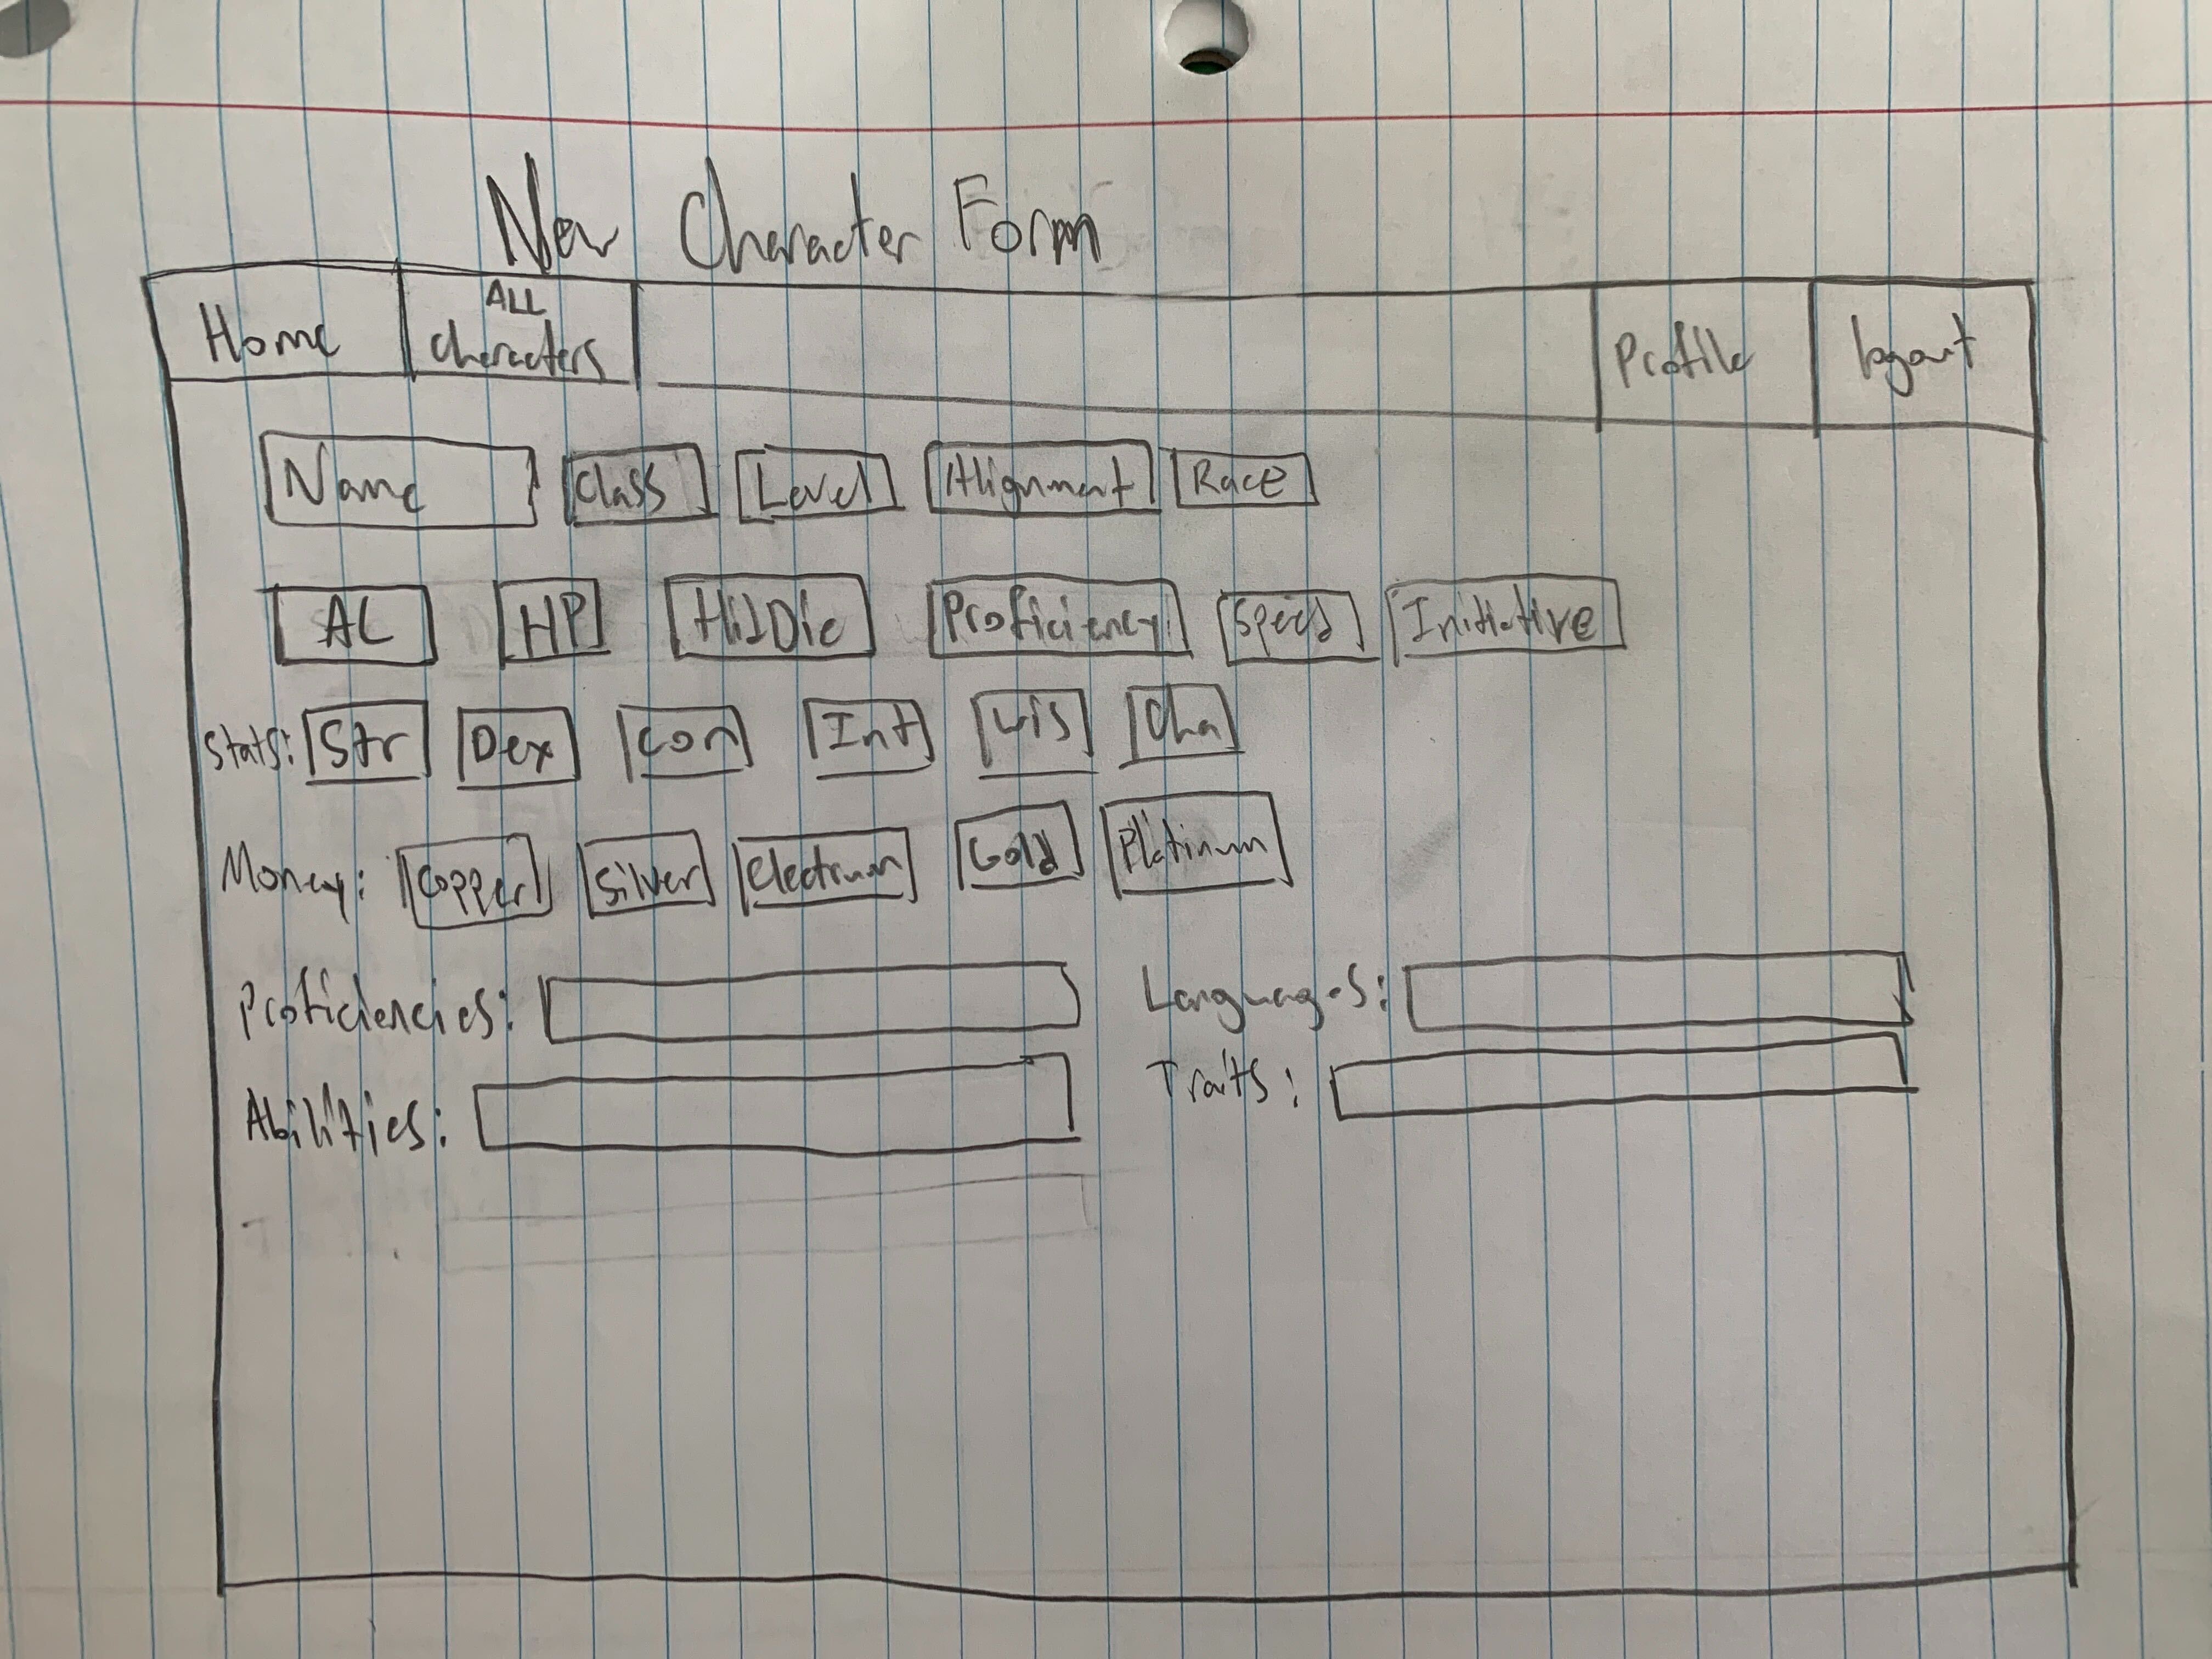 New Character Form
Home ALL characters Profile logout
Name Class Level Alignment Race
AC HP HitDie Proficiency Speed Initiative
Stats: Str Dex Con Int Wis Cha
Money: Copper Silver Electrum Gold Platinum
Proficiencies: Languages:
Abilities: Traits: